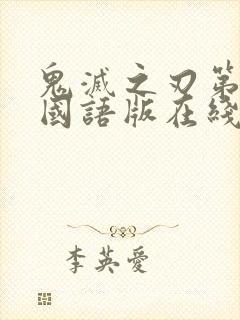 鬼滅之刃第
國語版在綫
李英愛